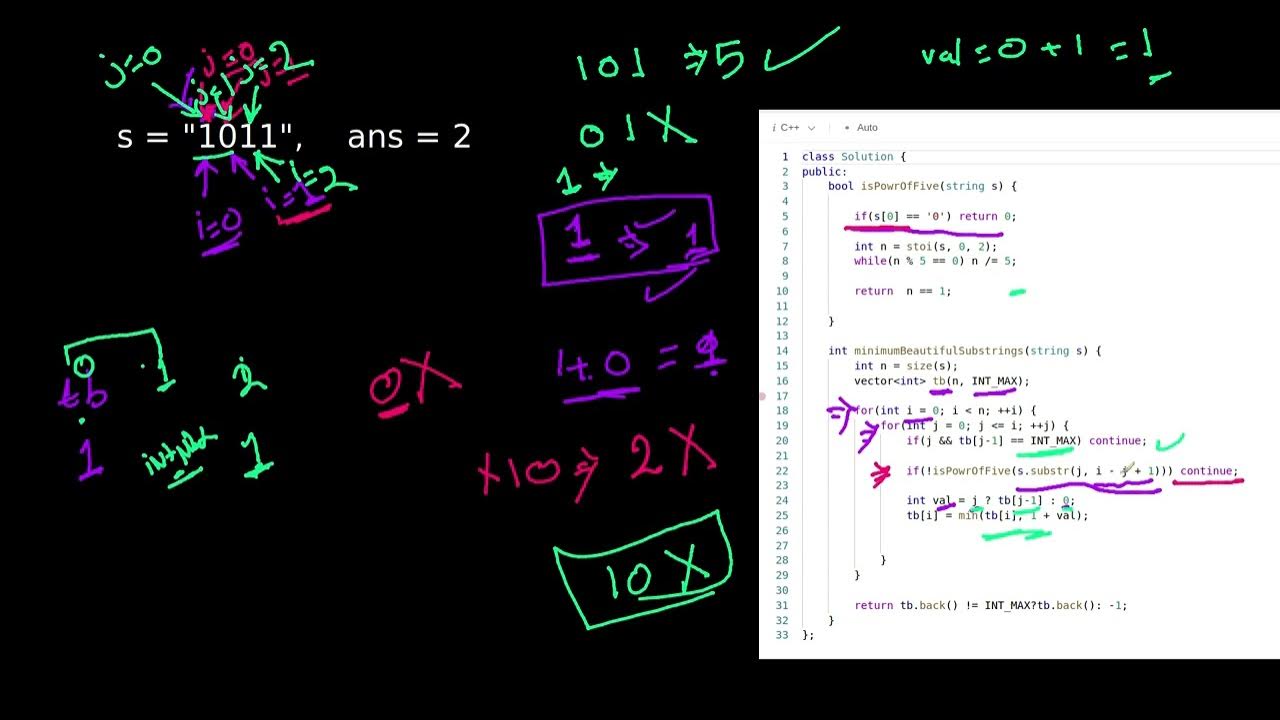 j=0
j=0
j=1
j=2
1
s = "1011",    ans = 2
i=0
i=1
i=2
101 ⇒ 5 ✓
01 X
1 ⇒
1 ⇒ 1
1 + 0 = 1
X10 ⇒ 2 X
10 X
0 X
val = 0 + 1 = 1
0 1 2
tb
1 1
i C++ Auto
1 class Solution {
2 public:
3 bool isPowrOfFive(string s) {
4
5 if(s[0] == '0') return 0;
6
7 int n = stoi(s, 0, 2);
8 while(n % 5 == 0) n /= 5;
9
10 return  n == 1;
11
12 }
13
14 int minimumBeautifulSubstrings(string s) {
15 int n = size(s);
16 vector<int> tb(n, INT_MAX);
17
18 for(int i = 0; i < n; ++i) {
19 for(int j = 0; j <= i; ++j) {
20 if(j && tb[j-1] == INT_MAX) continue;
21
22 if(!isPowrOfFive(s.substr(j, i - j + 1))) continue;
23
24 int val = j ? tb[j-1] : 0;
25 tb[i] = min(tb[i], 1 + val);
26
27
28 }
29 }
30
31 return tb.back() != INT_MAX?tb.back(): -1;
32 }
33 };